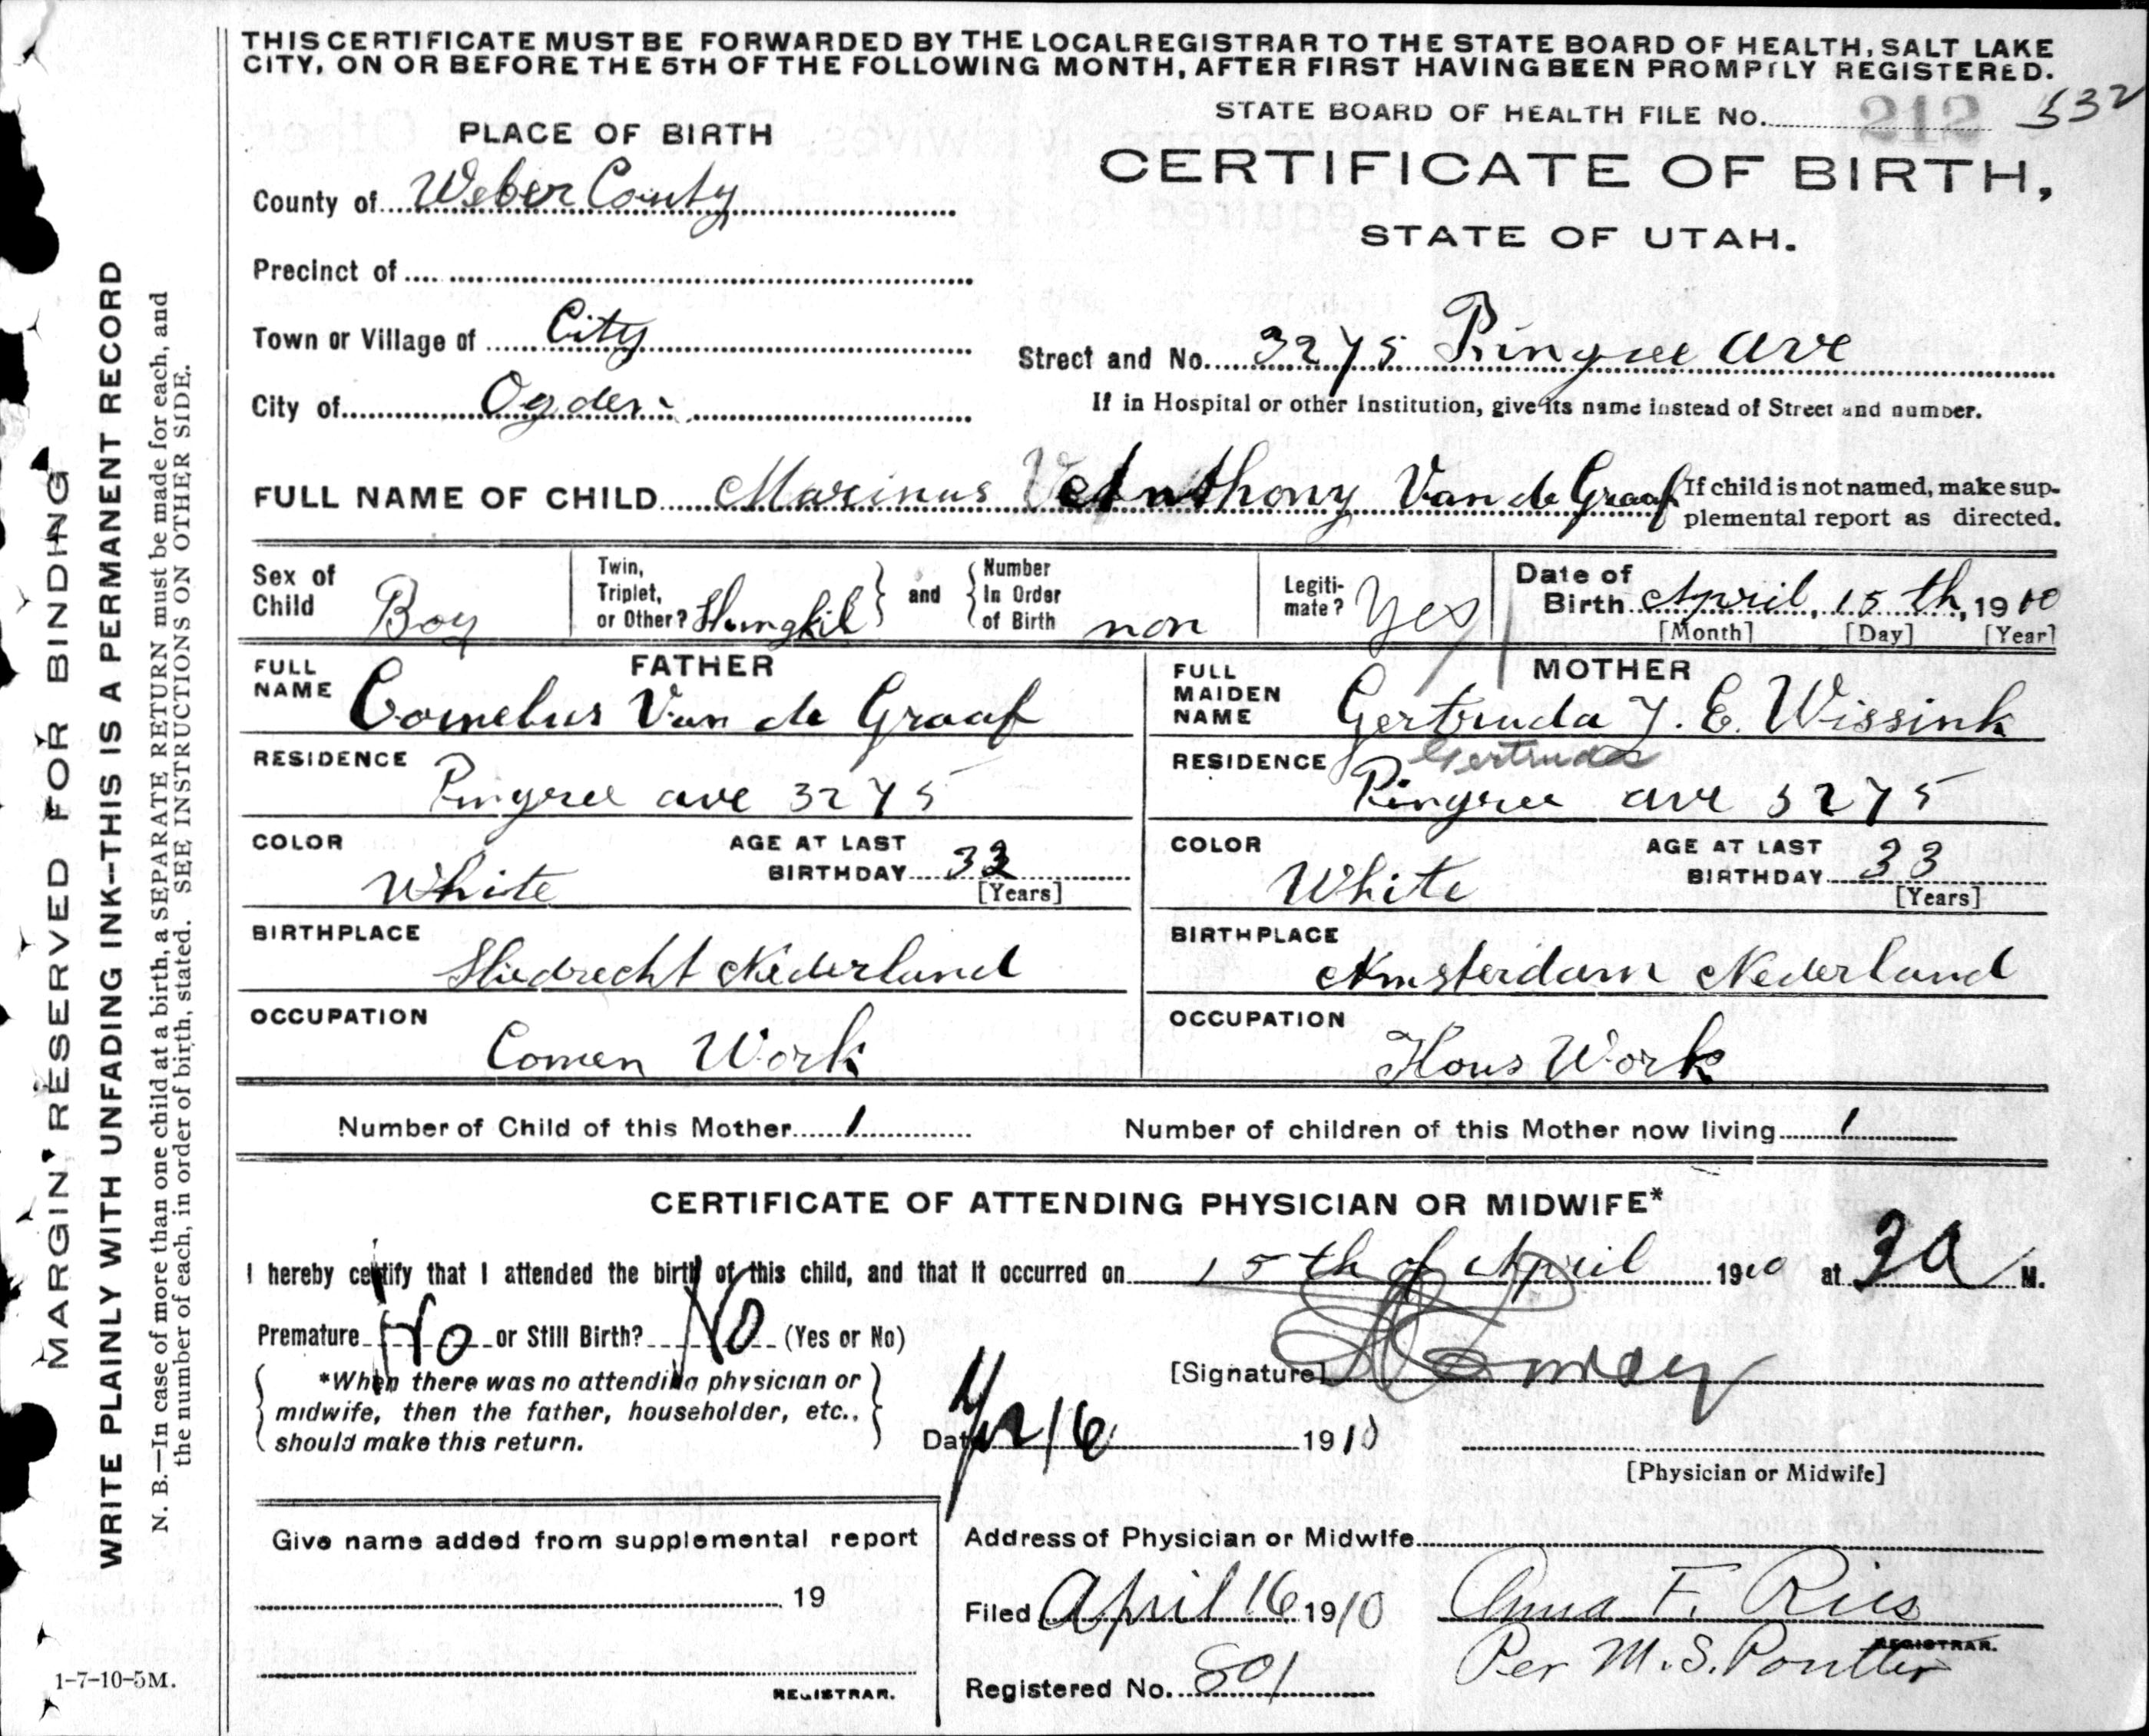 THIS CERTIFICATE MUST BE FORWARDED BY THE LOCAL REGISTRAR TO THE STATE BOARD OF HEALTH, SALT LAKE
CITY, ON OR BEFORE THE 5TH OF THE FOLLOWING MONTH, AFTER FIRST HAVING BEEN PROMPTLY REGISTERED.
STATE BOARD OF HEALTH FILE No. 212 532
PLACE OF BIRTH
CERTIFICATE OF BIRTH,
STATE OF UTAH.
County of Weber County
Precinct of
Town or Village of City
Street and No. 3275 Pingree ave
City of Ogden
If in Hospital or other Institution, give its name instead of Street and number.
FULL NAME OF CHILD Marinus Anthony Van de Graaf
If child is not named, make sup-
plemental report as directed.
Sex of Child Boy
Twin, Triplet, or Other?
and
Number In Order of Birth non
Legiti-mate? Yes
Date of Birth April, 15th, 1910
[Month] [Day] [Year]
FATHER
FULL NAME Cornelius Van de Graaf
RESIDENCE Pingree ave 3275
COLOR White
AGE AT LAST BIRTHDAY 33
[Years]
BIRTHPLACE Sliedrecht Nederland
OCCUPATION Comen Work
MOTHER
FULL MAIDEN NAME Gertruda J. E. Wissink
Gertrudes
RESIDENCE Pingree ave 3275
COLOR White
AGE AT LAST BIRTHDAY 33
[Years]
BIRTHPLACE Amsterdam Nederland
OCCUPATION Hous Work
Number of Child of this Mother 1
Number of children of this Mother now living 1
CERTIFICATE OF ATTENDING PHYSICIAN OR MIDWIFE*
I hereby certify that I attended the birth of this child, and that it occurred on 15th of April 1910 at 3 A M.
Premature No or Still Birth? No (Yes or No)
*When there was no attending physician or
midwife, then the father, householder, etc.,
should make this return.
[Signature]
Date 1910
[Physician or Midwife]
Give name added from supplemental report
19
REGISTRAR.
Address of Physician or Midwife
Filed April 16 1910 Anna F. Ries
REGISTRAR.
Per M. S. Poulter
Registered No. 801
1-7-10-5M.
MARGIN RESERVED FOR BINDING
WRITE PLAINLY WITH UNFADING INK--THIS IS A PERMANENT RECORD
N. B.—In case of more than one child at a birth, a SEPARATE RETURN must be made for each, and
the number of each, in order of birth, stated. SEE INSTRUCTIONS ON OTHER SIDE.